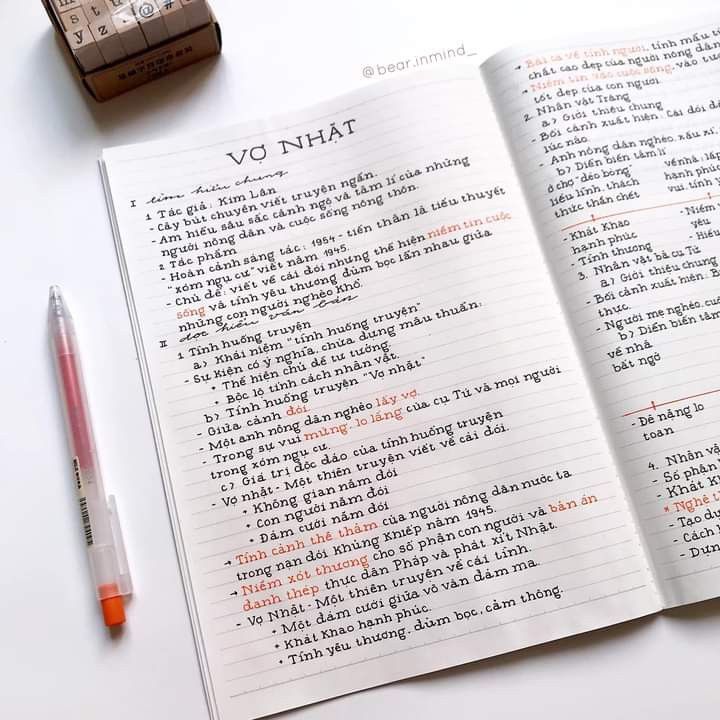 m
s t u
y z . @ #
@bear.inmind_
VỢ NHẶT
I tìm hiểu chung
1 Tác giả: Kim Lân
- Cây bút chuyên viết truyện ngắn.
- Am hiểu sâu sắc cảnh ngộ và tâm lí của những
người nông dân và cuộc sống nông thôn.
2 Tác phẩm
- Hoàn cảnh sáng tác: 1954 - tiền thân là tiểu thuyết
"xóm ngụ cư" viết năm 1945.
- Chủ đề: viết về cái đói nhưng thể hiện niềm tin cuộc
sống và tình yêu thương đùm bọc lẫn nhau giữa
những con người nghèo khổ.
II đọc hiểu văn bản
1 Tình huống truyện
a) Khái niệm "tình huống truyện"
- Sự kiện có ý nghĩa, chứa đựng mâu thuẫn:
• Thể hiện chủ đề tư tưởng.
• Bộc lộ tính cách nhân vật.
b) Tình huống truyện "Vợ nhặt"
- Giữa cảnh đói.
- Một anh nông dân nghèo lấy vợ.
- Trong sự vui mừng, lo lắng của cụ Tứ và mọi người
trong xóm ngụ cư.
c) Giá trị độc đáo của tình huống truyện
- Vợ nhặt - Một thiên truyện viết về cái đói.
• Không gian năm đói
• Con người năm đói
• Đám cưới năm đói
→ Tình cảnh thê thảm của người nông dân nước ta
trong nạn đói khủng khiếp năm 1945.
→ Niềm xót thương cho số phận con người và bản án
đanh thép thực dân Pháp và phát xít Nhật.
- Vợ Nhặt - Một thiên truyện về cái tình.
• Một đám cưới giữa vô vàn đám ma.
• Khát khao hạnh phúc.
• Tình yêu thương, đùm bọc, cảm thông.
→ Bài ca về tình người, tình mẫu
chất cao đẹp của người nông dân
→ Niềm tin vào cuộc sống, vào
tốt đẹp của con người
2. Nhân vật Tràng
a) Giới thiệu chung
- Bối cảnh xuất hiện: Cái đói
lúc nào
- Anh nông dân nghèo, xấu xí,
b) Diễn biến tâm lí
ở chợ - đèo bòng
liều lĩnh, thách
thức thần chết
về nhà, lấp
hạnh phúc
vui, tình
- Khát khao
hạnh phúc
- Tình thương
- Niềm
yêu
- Hiếu
3. Nhân vật bà cụ Tứ
a) Giới thiệu chung
- Bối cảnh xuất hiện:
thực.
- Người mẹ nghèo,
b) Diễn biến tâm
về nhà
bất ngờ
- Dè nàng lo
toan
4. Nhân vật
- Số phận
- Khát
* Nghệ
- Tạo
- Cách
- Dựng